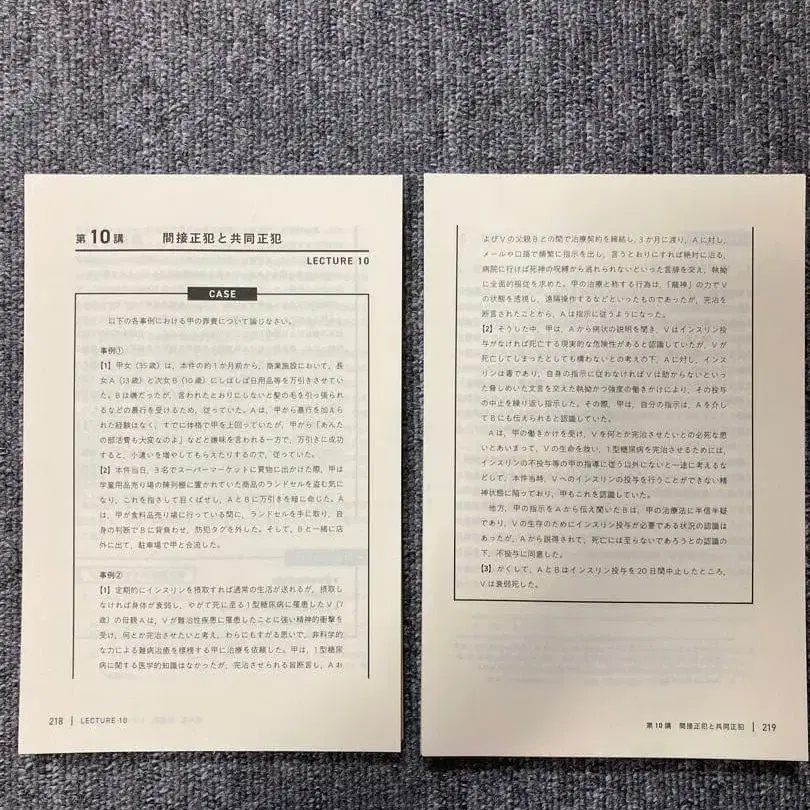 第10講 間接正犯と共同正犯
LECTURE 10
CASE
以下の各事例における甲の罪責について論じなさい。
事例①
【1】甲女（35歳）は、本件の約1か月前から、商業施設において、長
女A（13歳）と次女B（10歳）にしばしば日用品等を万引きさせてい
た。Bは嫌だったが、言われたとおりにしないと髪の毛を引っ張られ
るなどの暴行を受けるため、従っていた。Aは、甲から暴行を加えら
れた経験はなく、すでに体格で甲を上回っていたが、甲から「あんた
の部活費も大変なのよ」などと嫌味を言われる一方で、万引きに成功
すると、小遣いを増やしてもらえたりするので、従っていた。
【2】本件当日、3名でスーパーマーケットに買物に出かけた際、甲は
学童用品売り場の陳列棚に置かれていた商品のランドセルを盗む気に
なり、これを指さして目くばせし、AとBに万引きを暗に命じた。A
は、甲が食料品売り場に行っている間に、ランドセルを手に取り、自
身の判断でBに背負わせ、防犯タグを外した。そして、Bと一緒に店
外に出て、駐車場で甲と合流した。
事例②
【1】定期的にインスリンを摂取すれば通常の生活が送れるが、摂取し
なければ身体が衰弱し、やがて死に至る1型糖尿病に罹患したV（7
歳）の母親Aは、Vが難治性疾患に罹患したことに強い精神的衝撃を
受け、何とか完治させたいと考え、わらにもすがる思いで、非科学的
な力による難病治療を標榜する甲に治療を依頼した。甲は、1型糖尿
病に関する医学的知識はなかったが、完治させられる旨断言し、Aお
218 LECTURE 10
よびVの父親Bとの間で治療契約を締結し、3か月に渡り、Aに対し、
メールや口頭で頻繁に指示を出し、言うとおりにすれば絶対に治る、
病院に行けば死神の呪縛から逃れられないといった言辞を交え、執拗
に全面的服従を求めた。甲の治療と称する行為は、「龍神」の力でV
の状態を透視し、遠隔操作するなどといったものであったが、完治を
断言されたことから、Aは指示に従うようになった。
【2】そうした中、甲は、Aから病状の説明を聞き、Vはインスリン投
与がなければ死亡する現実的な危険性があると認識していたが、Vが
死亡してしまったとしても構わないとの考の下、Aに対し、インス
リンは毒であり、自身の指示に従わなければVは助からないといっ
た脅しめいた文言を交えた執拗かつ強度の働きかけにより、その投与
の中止を繰り返し指示した。その際、甲は、自分の指示は、Aを介し
てBにも伝えられると認識していた。
Aは、甲の働きかけを受け、Vを何とか完治させたいとの必死な思
いとあいまって、Vの生命を救い、1型糖尿病を完治させるためには、
インスリンの不投与等の甲の指導に従う以外にないと一途に考えるな
どして、本件当時、Vへのインスリンの投与を行うことができない精
神状態に陥っており、甲もこれを認識していた。
他方、甲の指示をAから伝え聞いたBは、甲の治療法に半信半疑
であり、Vの生存のためにインスリン投与が必要である状況の認識は
あったが、Aから説得されて、死亡には至らないであろうとの認識の
下、不投与に同意した。
【3】かくして、AとBはインスリン投与を20日間中止したところ、
Vは衰弱死した。
第10講 間接正犯と共同正犯 219